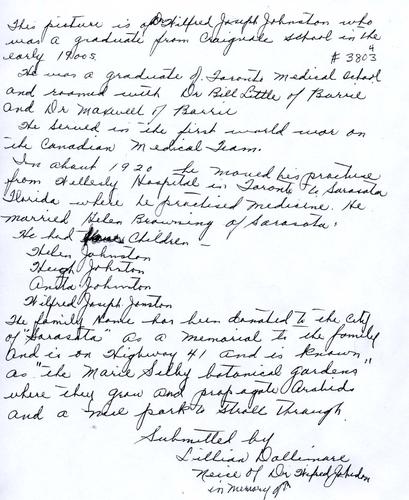 This picture is of Dr Wilfred Joseph Johnston who
was a graduate from Craigvale school in the
early 1900s.
# 3803
He was a graduate of Toronto Medical School
and roomed with Dr Bill Little of Barrie
and Dr Maxwell of Barrie
He served in the first world war on
the Canadian Medical Team.
In about 1920 he moved his practise
from Wellesly Hospital in Toronto to Sarasota
Florida where he practised medicine. He
married Helen Browning of Sarasota.
He had Children -
Helen Johnston
Hugh Johnston
Anita Johnston
Wilfred Joseph Jonston
The family Home has been donated to the City
of "Sarasota" as a memorial to the family
and is on Highway 41 and is known
as "the Marie Selby botanical gardens"
where they grow and propagate
and a nice park to stroll through.
Submitted by
Lillian Dallimore
Neice of Dr Wilfred Johnston
in memory of